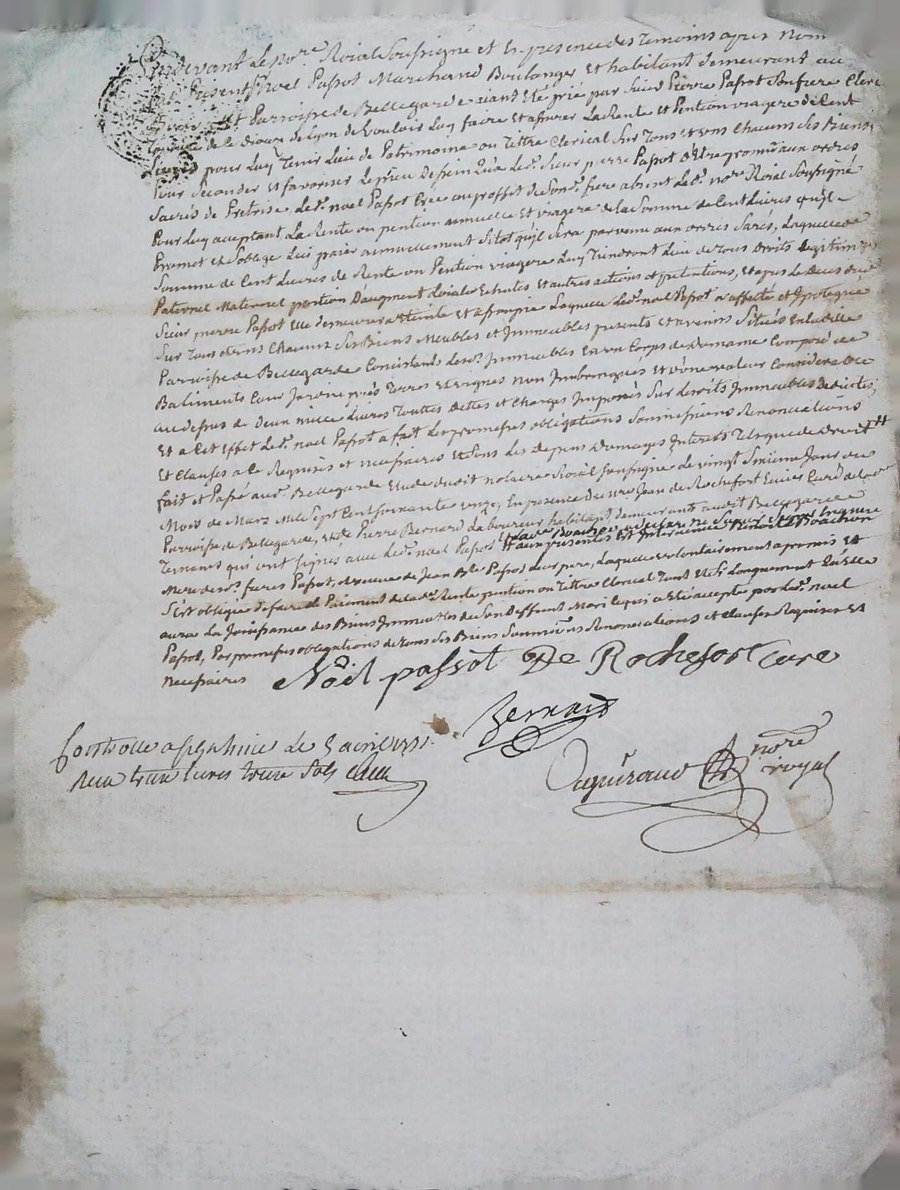 Pardevant Le No.re Roial Soussigné et En presence des temoins apres Nom
Present S.r Noel Passot Marchand Boulanger Et habitant demeurant au
Et Parroisse de Bellegarde eiant Eté prié par Sieur Pierre Passot Son frere Clerc
Tonsuré de ce dioceze de Lyon de Vouloir Luy faire et assurer La Rente et Pention viagere de Cent
Livres pour Luy Tenir Lieu de Patrimoine ou Tittre Clerical Sur Tous et uns Chacuns Ses Biens,
Pour Seconder et favoriser Le pieu dessein qu'a Led. Sieur pierre Passot d'Etre promû aux ordres
Sacrés de Pretrise, Led. noel Passot Cree au proffit de Sond. frere absent Led. no.re Roial Soussigné
Pour Luy acceptant La Rente ou pention annuelle et viagere de la Somme de Cent Livres qu'il
Promet et S'oblige Lui paier annuellement Sitot qu'il Sera parvenu aux ordres Sacrés, Laquelle
Somme de Cent Livres de Rente ou Pention viagere Luy Tiendront Lieu de tous Droits Legitimaires
Paternel Maternel portion D'augment Loiale Echutes et autres actions et pretentions, et apres Le Deces dud.
Sieur pierre Passot Elle demeurera Eteinte et affranpie Laquelle Led. noel Passot a affecté et Ipotequé
Sur Tous et uns Chacuns Ses Biens Meubles et Immeubles presents et avenir Situés En lad.
Parroisse de Bellegarde Consistants Lesd. Immeubles En un Corps de Domaine Composé de
Batiments Cour Jardin prés Terres et vignes non Imbringués et d'une valeur Considerable
au depus de Deux mille Livres Touttes Dettes et Charges Imposés Sur Lesdits Immeubles Deduittes,
Et a Cet Effet Led. noel Passot a fait Les promesses obligations Soumissions Renonciations
Et Clauses a Ce Requises et necessaires et Sous Les depens Domages Interets Telque de Droit #
fait et Passé aud. Bellegarde Etude dudit notaire Roial Soussigné Le vingt Sixieme Jour du
Mois de Mars Mil Sept Cent Soixante onze, En presence de M.re Jean de Rochefort Curé de lad.
Parroisse de Bellegarde, et de Pierre Bernard Laboureur habitant demeurants audit Bellegarde
Temoins qui ont Signés avec Led. noel Passot # aux presentes Est Intervenue Claire Boachon
Mere desd. freres Passot, et veuve de Jean B.te Passot Leur pere, Laquelle volontairement a promis Et
S'est obligée de faire Le Paiment de lad. Rente pention ou Tittre Clerical Tant et Si Longuement qu'Elle
aura La Jouissance des Biens Immeubles de Son Deffunt Mari Ce qui a Eté accepté par Led. noel
Passot, Par promesses obligations de tous Ses Biens Soumissions Renonciations et Clauses Requises Et
Necessaires
Noël passot De Rochefort Curé
Bernard
Controllé a le 5 avril 1771
Reçu treize sols
no.re royal